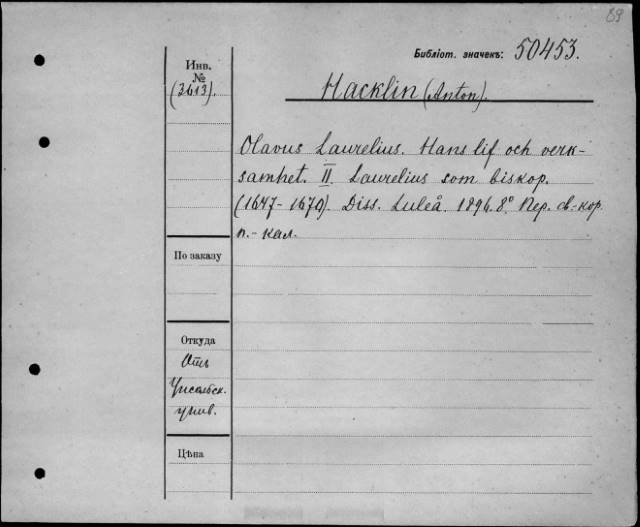 89
Библіот. значекъ: 50453.
Инв.
№
(3613).
Hacklin (Anton).
Olavus Laurelius. Hans lif och verk-
samhet. II. Laurelius som biskop.
(1647-1670). Diss. Luleå. 1896. 8° Пер. св.-кор
п.-кал.
По заказу
Откуда
Отъ
Упсальск.
унив.
Цѣна